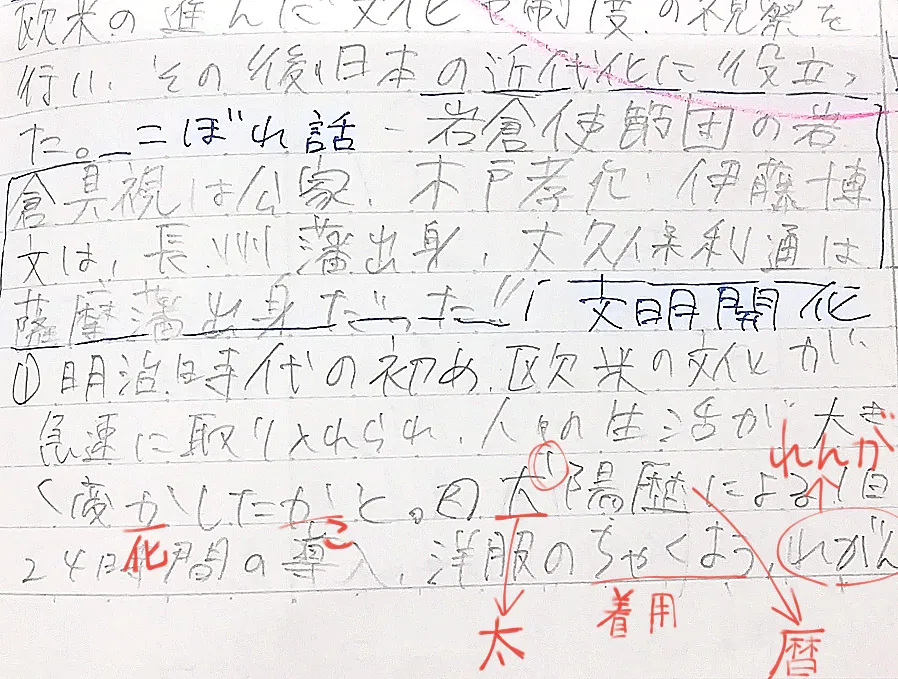 欧米の進んだ文化や制度の視察を
行い、その後旧日本の近代化に役立っ
た。こぼれ話-岩倉使節団の岩
倉具視は公家、木戸孝允、伊藤博
文は、長州藩出身、大久保利通は
薩摩藩出身だった!! 文明開化
①明治時代の初め、欧米の文化が
急速に取り入れられ、人々の生活が大き
れんが
く変かしたがと。②大陽歴による1日
化 こ
24時間の導入、洋服のちゃくよう、れがん
太 着用 暦